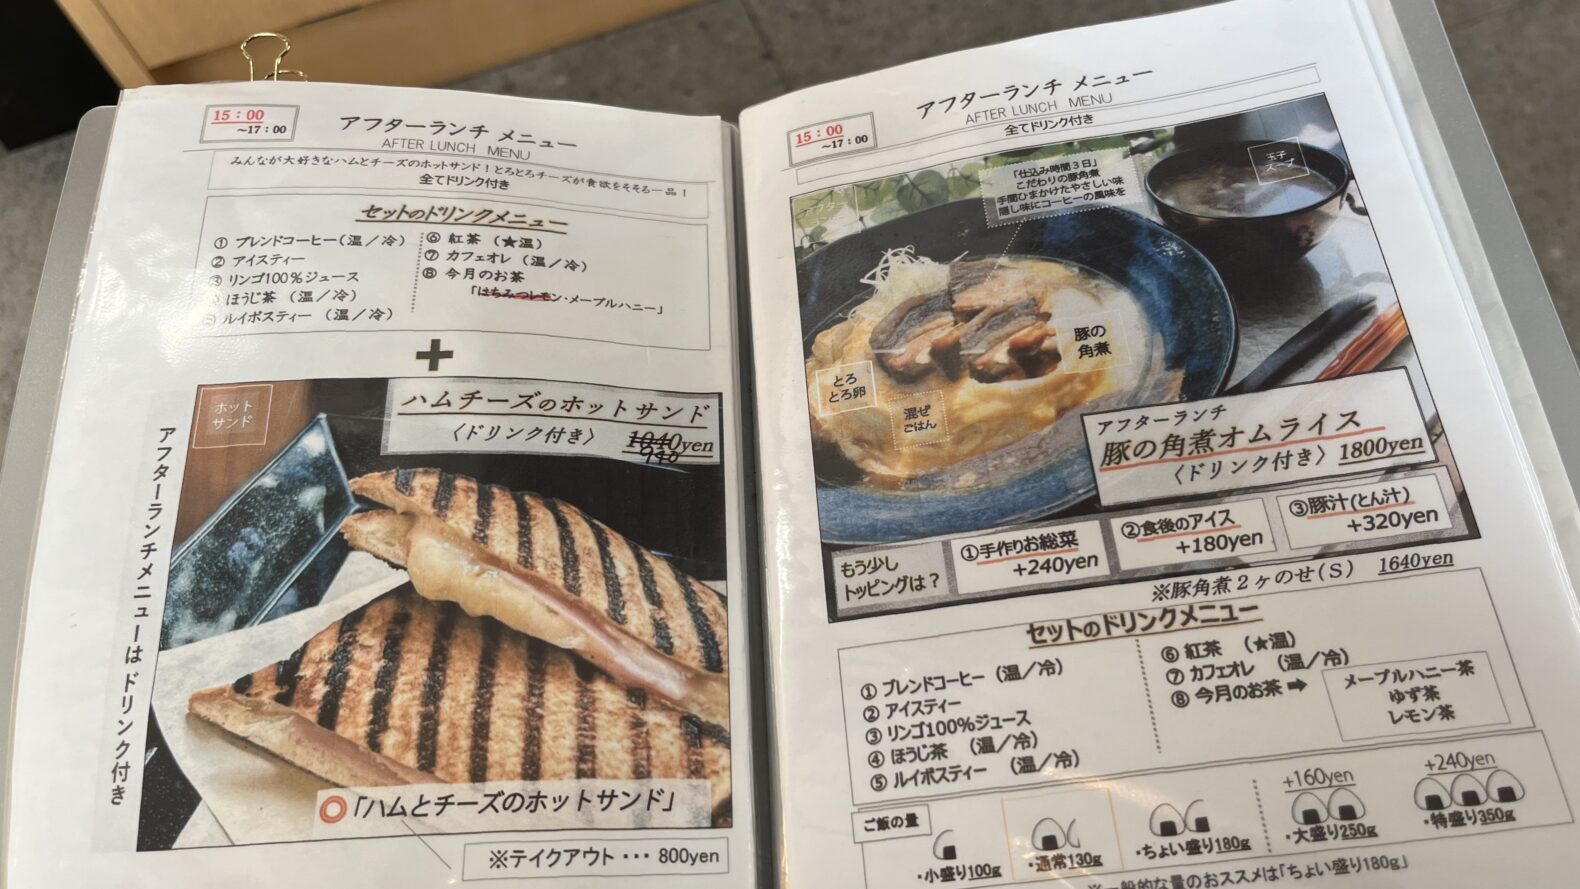 15：00
～17：00
アフターランチ メニュー
AFTER LUNCH MENU
みんなが大好きなハムとチーズのホットサンド！とろとろチーズが食欲をそそる一品！
全てドリンク付き
セットのドリンクメニュー
① ブレンドコーヒー（温／冷）
② アイスティー
③ リンゴ100％ジュース
ほうじ茶 （温／冷）
⑤ ルイボスティー （温／冷）
⑥ 紅茶 （★温）
⑦ カフェオレ （温／冷）
⑧ 今月のお茶
「はちみつレモン・メープルハニー」
＋
ホット
サンド
ハムチーズのホットサンド
〈ドリンク付き〉 1040yen
940
アフターランチメニューは ドリンク付き
「ハムとチーズのホットサンド」
※テイクアウト ･･･ 800yen
15：00
～17：00
アフターランチ メニュー
AFTER LUNCH MENU
全てドリンク付き
「仕込み時間３日」
こだわりの豚角煮
手間ひまかけたやさしい味
隠し味にコーヒーの風味を
玉子
スープ
豚の
角煮
とろ
とろ卵
混ぜ
ごはん
アフターランチ
豚の角煮オムライス
〈ドリンク付き〉 1800yen
もう少し
トッピングは？
①手作りお総菜
+240yen
②食後のアイス
+180yen
③豚汁(とん汁)
+320yen
※豚角煮２ヶのせ(Ｓ) 1640yen
セットのドリンクメニュー
① ブレンドコーヒー （温／冷）
② アイスティー
③ リンゴ100％ジュース
④ ほうじ茶 （温／冷）
⑤ ルイボスティー （温／冷）
⑥ 紅茶 （★温）
⑦ カフェオレ （温／冷）
⑧ 今月のお茶 ➡
メープルハニー茶
ゆず茶
レモン茶
ご飯の量
・小盛り100g
・通常130g
・ちょい盛り180g
+160yen
・大盛り250g
+240yen
・特盛り350g
※一般的な量のおススメは「ちょい盛り180g」